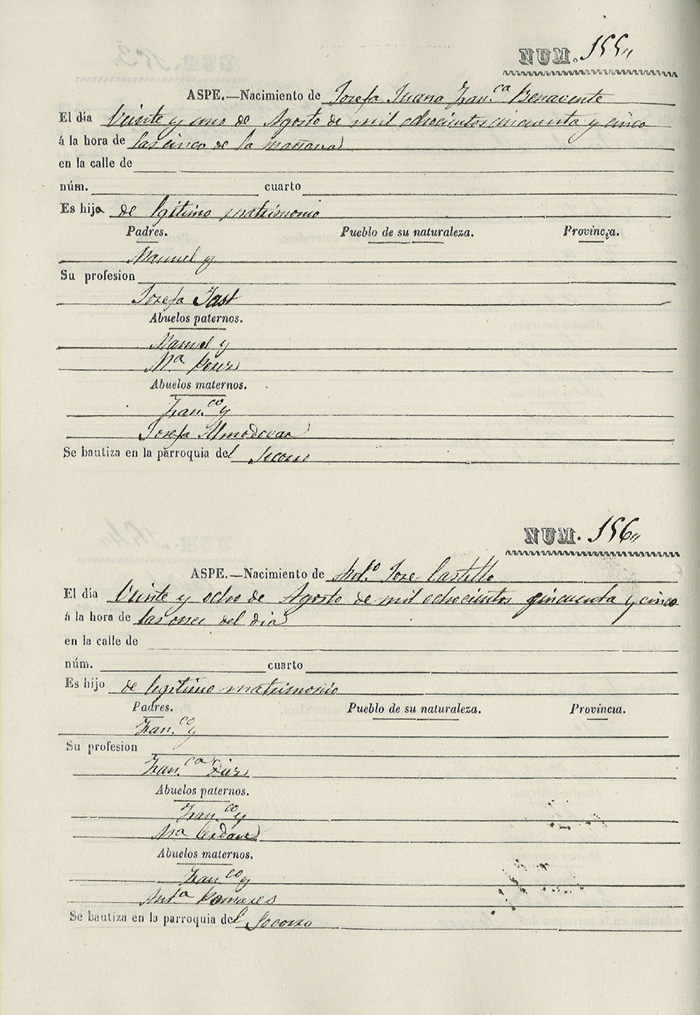 NUM. 155,,
ASPE.—Nacimiento de Josefa Juana Fran.ca Benavente
El dia Veinte y uno de Agosto de mil ochocientos cincuenta y cinco
á la hora de las cinco de la mañana
en la calle de
núm. cuarto
Es hija de lgitimo matrimonio
Padres. Pueblo de su naturaleza. Provincia.
Manuel y
Su profesion
Josefa Tast
Abuelos paternos.
Manuel y
M.a Perez
Abuelos maternos.
Fran.co y
Josefa Almodovar
Se bautiza en la parroquia del Socorro
NUM. 156,,
ASPE.—Nacimiento de Jose Castillo
El dia Veinte y ocho de Agosto de mil ochocientos cincuenta y cinco
á la hora de las once del dia
en la calle de
núm. cuarto
Es hijo de legitimo matrimonio
Padres. Pueblo de su naturaleza. Provincia.
Fran.co y
Su profesion
Fran.ca Diez
Abuelos paternos.
Fran.co y
M.a Cerdan
Abuelos maternos.
Fran.co y
Ant.a Pomares
Se bautiza en la parroquia del Socorro